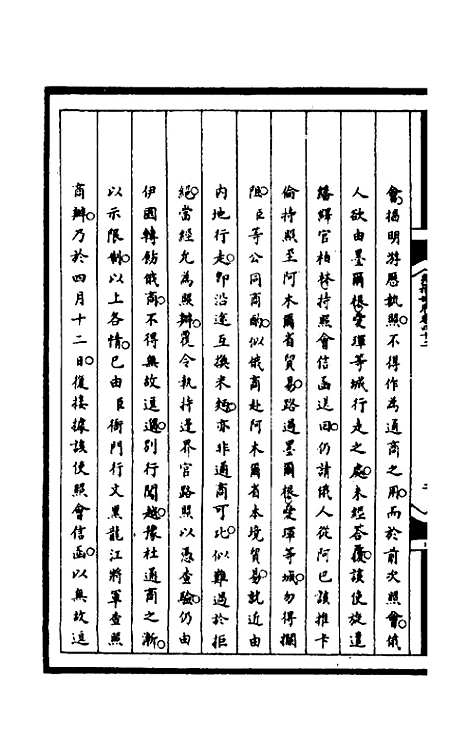 會揭明游歷執照不得作為通商之用而於前次照會俄
人欲由墨爾根愛琿等城行走之處未經答覆該使旋遣
繙繹官柏林持照會信函送回仍請俄人從阿巴該推卡
倫持照至阿木爾省貿易路過墨爾根愛琿等城勿得攔
阻臣等公同商酌似俄商赴阿木爾省本境貿易就近由
內地行走即沿途互換米麵亦非通商可比似難過於拒
絕當經允為照辦覆令執持邊界官路照以憑查驗仍由
伊國轉飭俄商不得無故逗遛別行闌越據社通商之漸
以示限制以上各情已由臣衙門行文黑龍江將軍查照
商辦乃於四月十二日復接據該使照會信函以無故逗